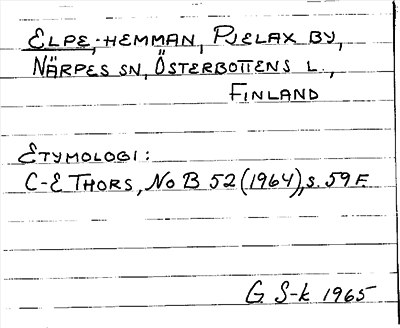 ELPE, -HEMMAN, PJELAX BY,
NÄRPES SN, ÖSTERBOTTENS L.,
FINLAND
ETYMOLOGI:
C-E THORS, NoB 52 (1964), s. 59 F.
G. S-k 1965